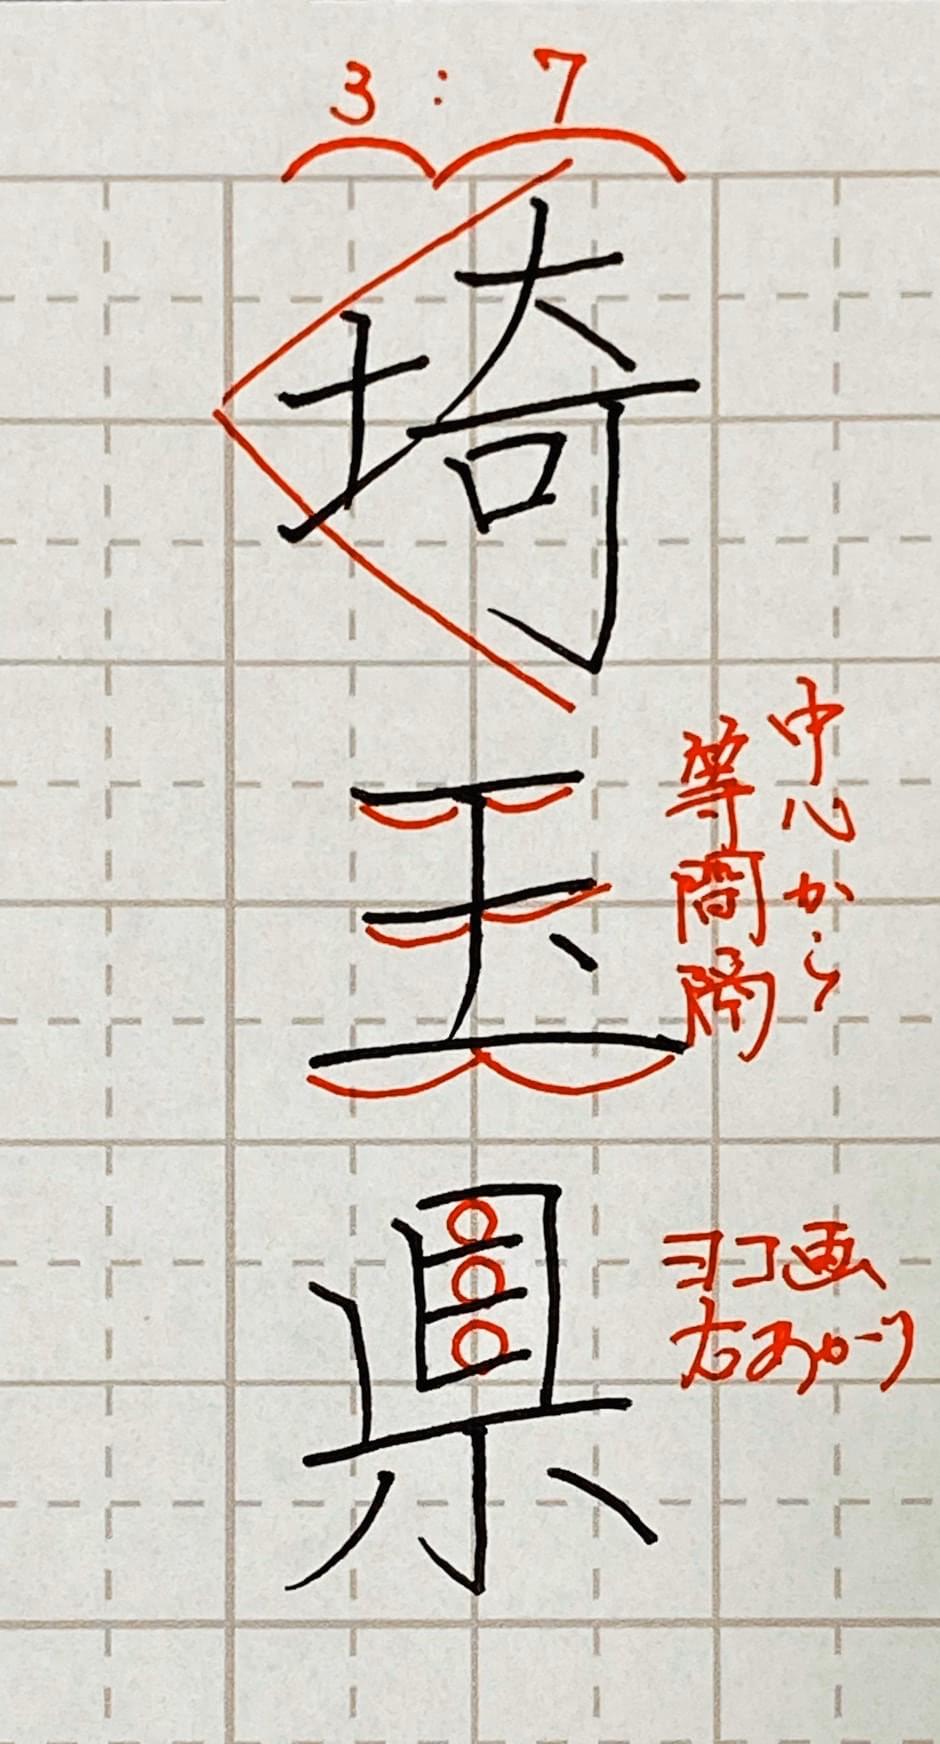 3:7
埼玉県
中心から
等間隔
ヨコ画
右あがり